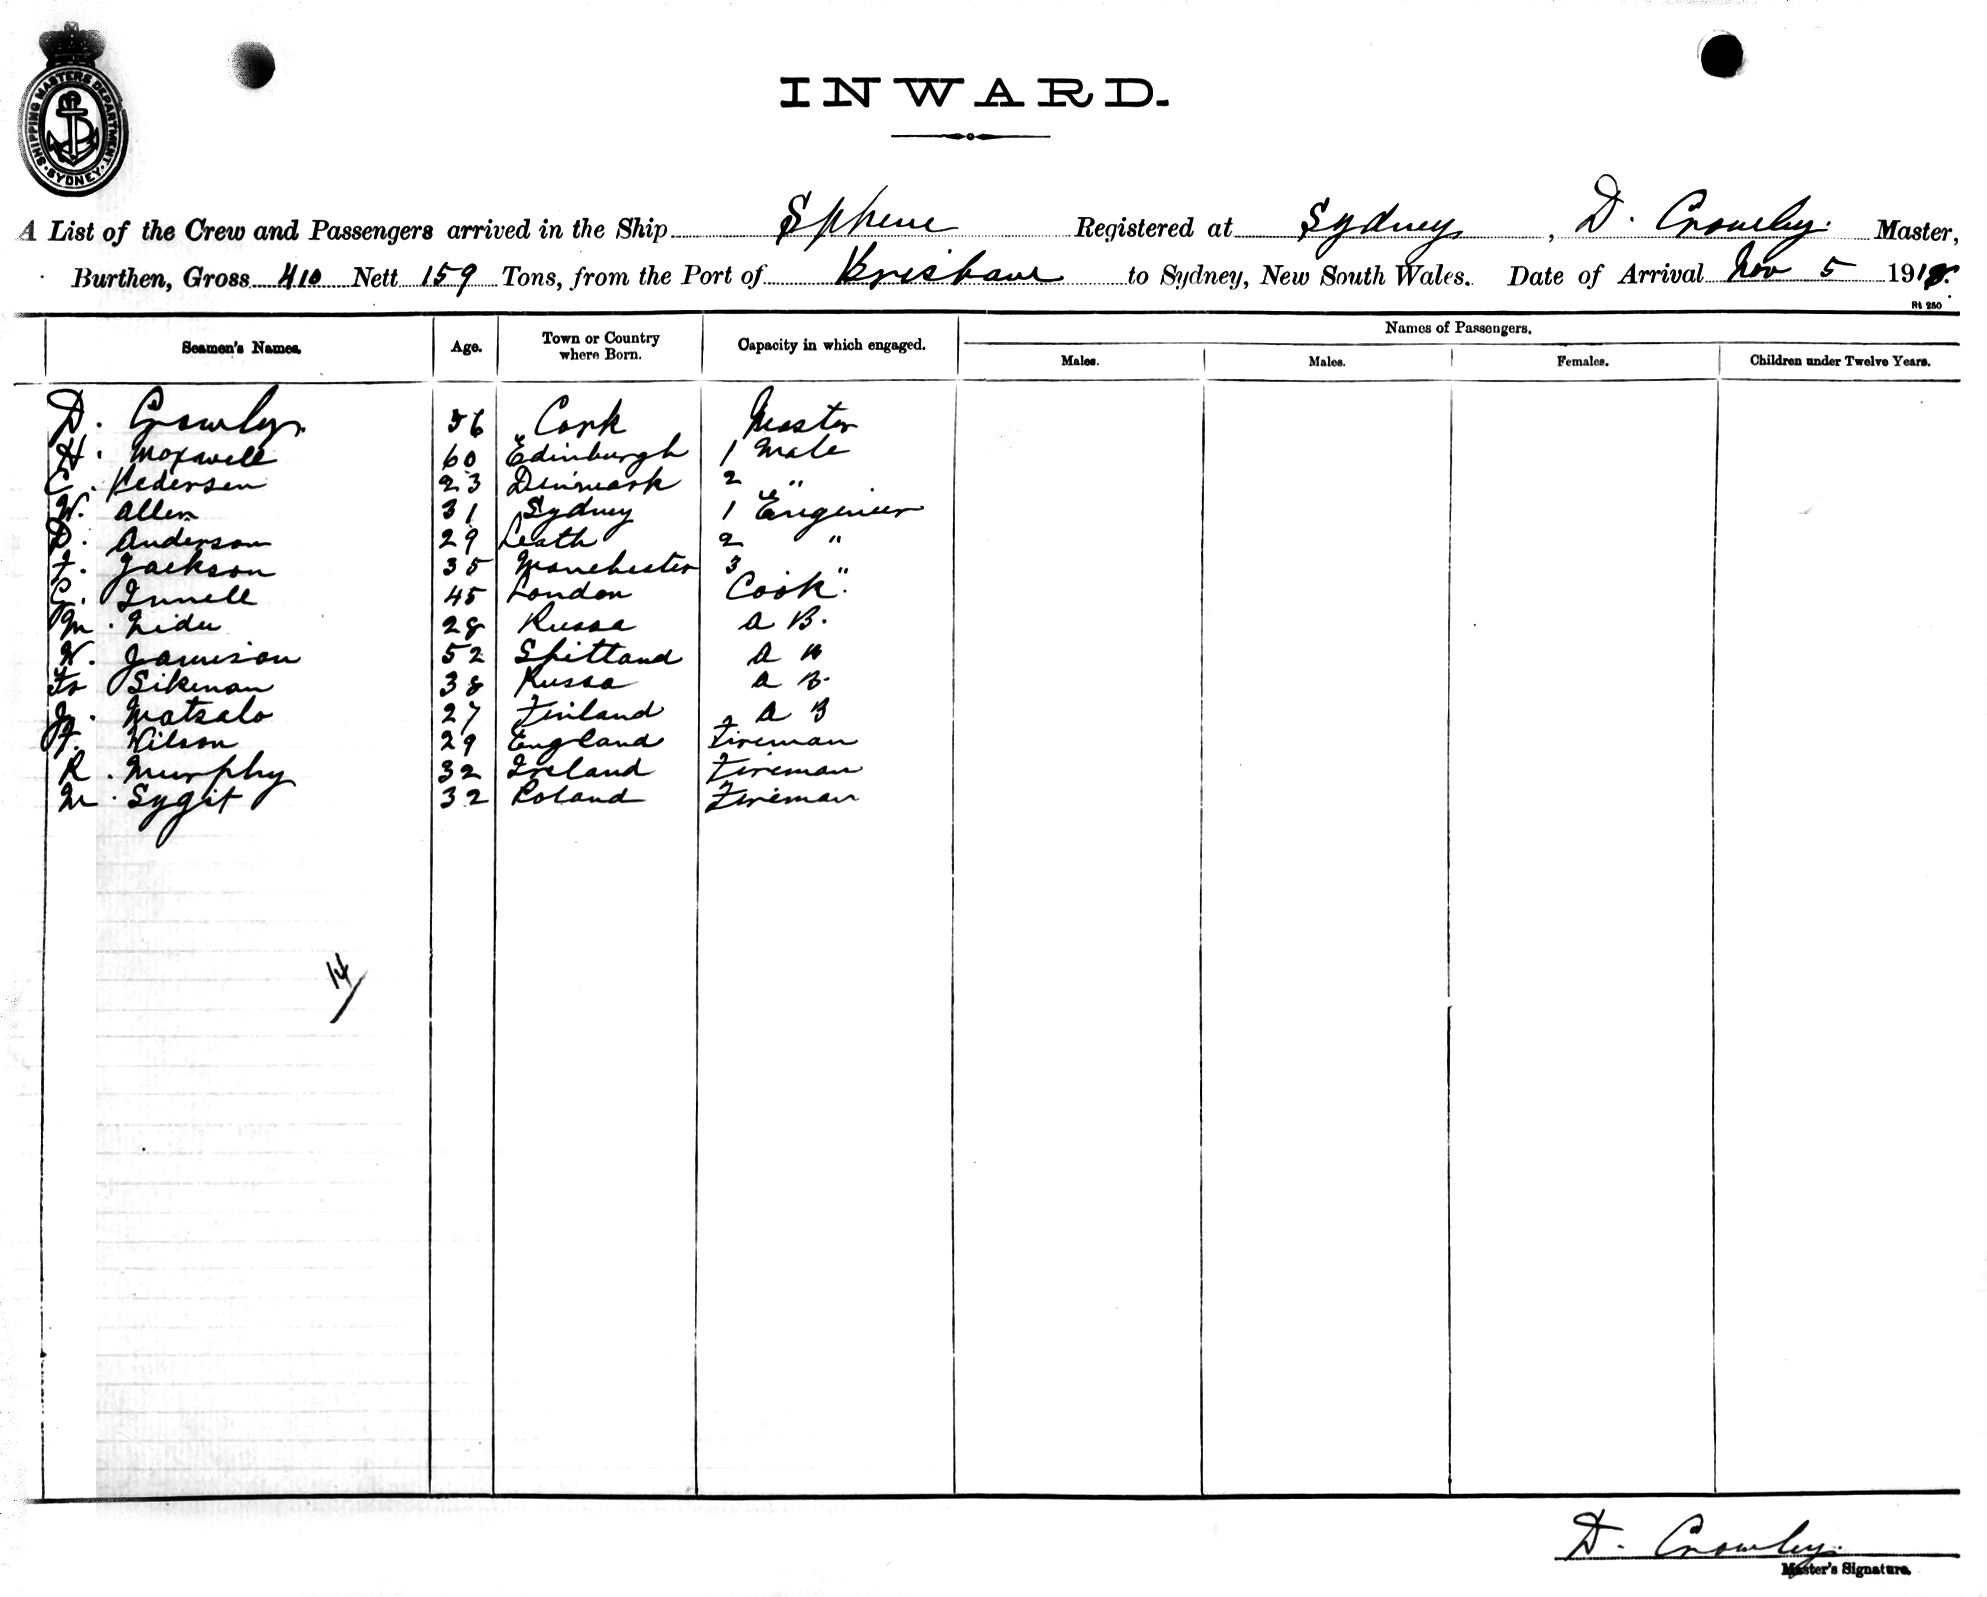 SHIPPING MASTERS DEPARTMENT
SYDNEY
INWARD.
A List of the Crew and Passengers arrived in the Ship Sphene Registered at Sydney, D. Crowley. Master,
Burthen, Gross 410 Nett 159 Tons, from the Port of Brisbane to Sydney, New South Wales. Date of Arrival Nov 5 191
Rt 250
Names of Passengers.
Seamen's Names. Age. Town or Country where Born. Capacity in which engaged. Males. Males. Females. Children under Twelve Years.
D. Crowley 56 Cork Master
H. Maxwell 60 Edinburgh 1 Mate
C. Pedersen 23 Dinmark 2 "
W. Allen 31 Sydney 1 Engineer
D. Anderson 29 Leath 2 "
F. Jackson 35 Manchester 3 "
G. Innell 45 London Cook.
M. Lidu 28 Russa A B.
W. Jamison 52 Shittand A B
Sikeman 38 Russa A B.
J. Matsalo 27 Finland A B
F. Wilson 29 England Fireman
R. Murphy 32 Ireland Fireman
M. Sygit 32 Poland Fireman
14/
D. Crowley.
Master's Signature.